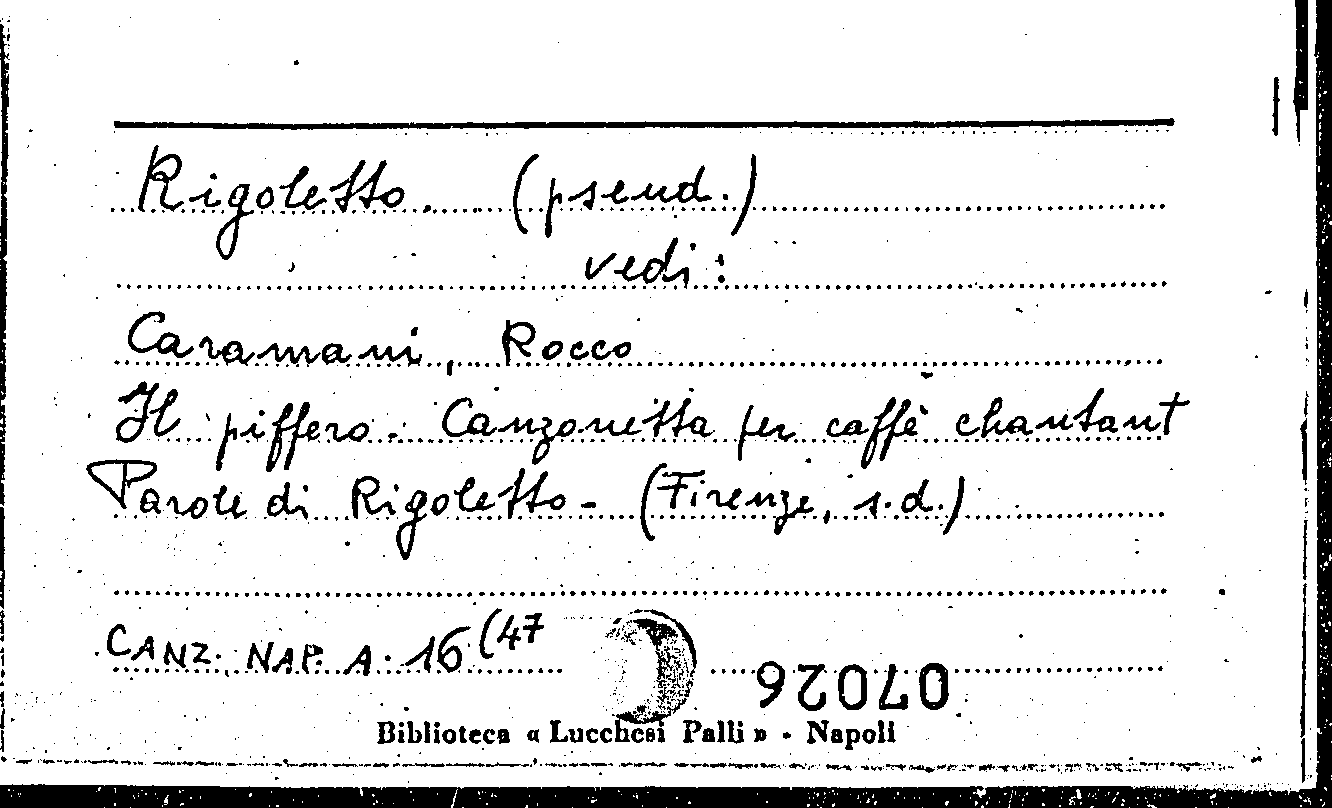 Rigoletto. (pseud.)
vedi:
Caramani, Rocco
Il piffero. Canzonetta per caffè chantant
Parole di Rigoletto - (Firenze, s.d.)
CANZ. NAP. A. 16 (47
07026
Biblioteca « Lucchesi Palli » - Napoli